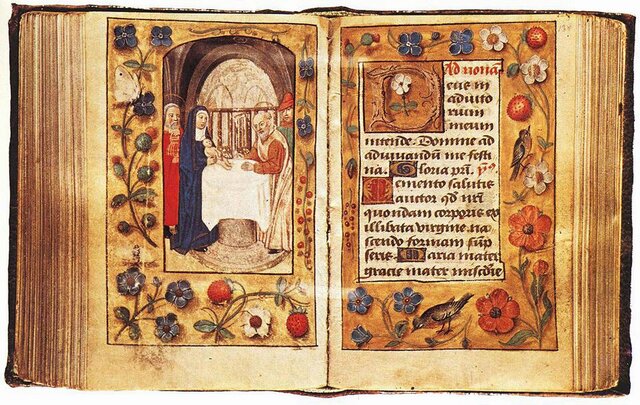 Ad nonā
eus in
adiuto
rium
meum
intende. Domine ad
adiuvandū me festi
na. Gloria pri. ymˢ
Memento salutis
auctor qd nri
quondam corporis ex
illibata virgine na
scendo formam sūp
seris. Maria mater
gracie mater miscdie